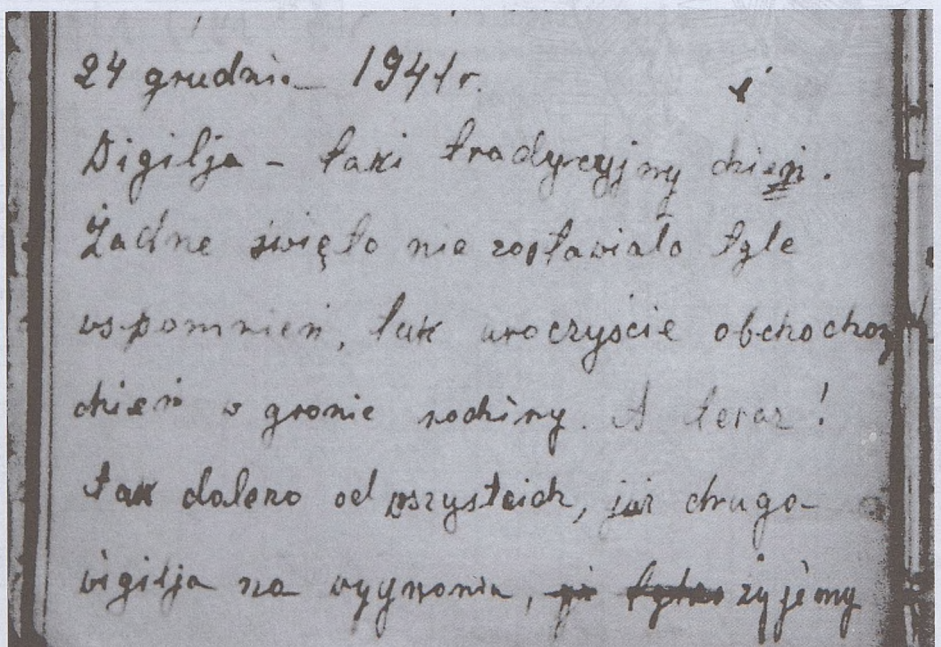 24 grudnia 1941r.
Wigilja - taki tradycyjny dzień.
Żadne święto nie zostawiało tyle
wspomnień, tak uroczyście obchodzony
dzień w gronie rodziny. A teraz!
tak daleko od wszystkich, już druga
wigilja na wygnaniu, żyjemy